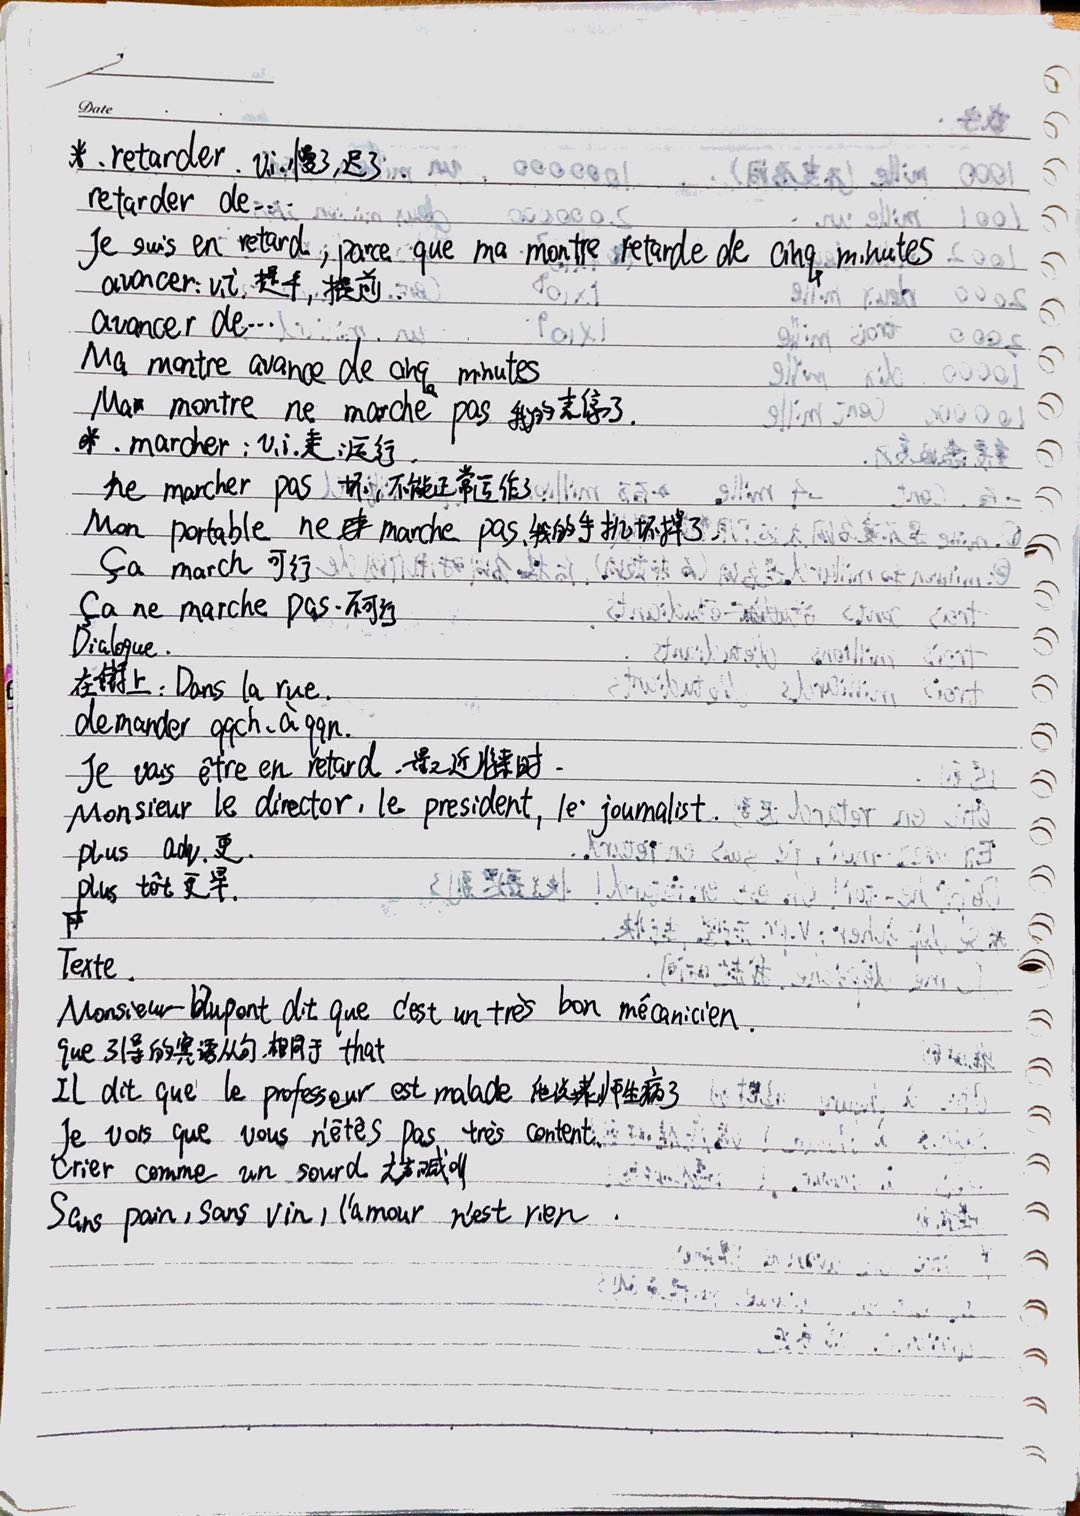 Date
* . retarder . v.i. 慢了,迟了.
retarder de...
Je suis en retard, parce que ma montre retarde de cinq minutes
avancer: v.i. 提手,提前.
avancer de...
Ma montre avance de cinq minutes
Ma montre ne marche pas 我的表停了.
* . marcher : v.i. 走;运行.
ne marcher pas 坏,不能正常运作了
Mon portable ne marche pas. 我的手机坏掉了.
Ça march 可行
Ça ne marche pas. 不可行
Dialogue.
在街上: Dans la rue.
demander qqch. à qqn.
Je vais être en retard. 最近将来时.
Monsieur le director, le president, le journalist.
plus adv. 更.
plus tôt 更早.
Texte.
Monsieur Dupont dit que c'est un très bon mécanicien.
que引导的宾语从句.相同于 that
Il dit que le professeur est malade 他说老师生病了
Je vois que vous n'êtes pas très content.
Crier comme un sourd 大声喊叫
Sans pain, sans vin, l'amour n'est rien .